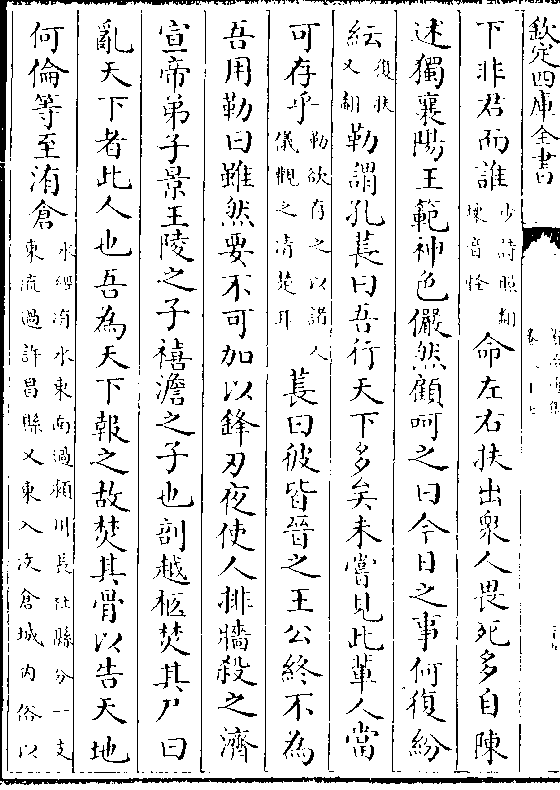 欽定四庫全書
下非君而誰少詩照翻悚音怪命左右扶出衆人畏死多自陳
述獨襄陽王範神色儼然顧呵之曰今日之事何復紛
紜復扶又翻勒謂孔萇曰吾行天下多矣未嘗見此輩人當
可存乎勒欲存之以諸人儀觀之清楚耳萇曰彼皆晉之王公終不為
吾用勒曰雖然要不可加以鋒刃夜使人排牆殺之濟
宣帝弟子景王陵之子禧澹之子也剖越柩焚其尸曰
亂天下者此人也吾為天下報之故焚其骨以告天地
何倫等至洧倉水經洧水東南過潁川長社縣分一支東流過許昌縣又東入汶倉城内俗以